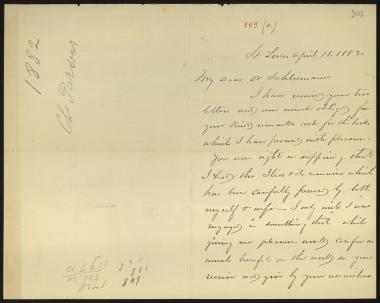 1882
Ch. Parsons
609 (a)
St Louis April 18. 1882
My Dear Dr Schliemann
I have received your two
letters and am much obliged for
your kind remarks and for the book
which I have perused with pleasure.
You are right in supposing that
I had the Ilios & its remains which
has been carefully perused by both
myself & wife – I only wish I was
engaged in something that while
giving me pleasure would confer as
much benefit on the world as you
receive and give by your researches.